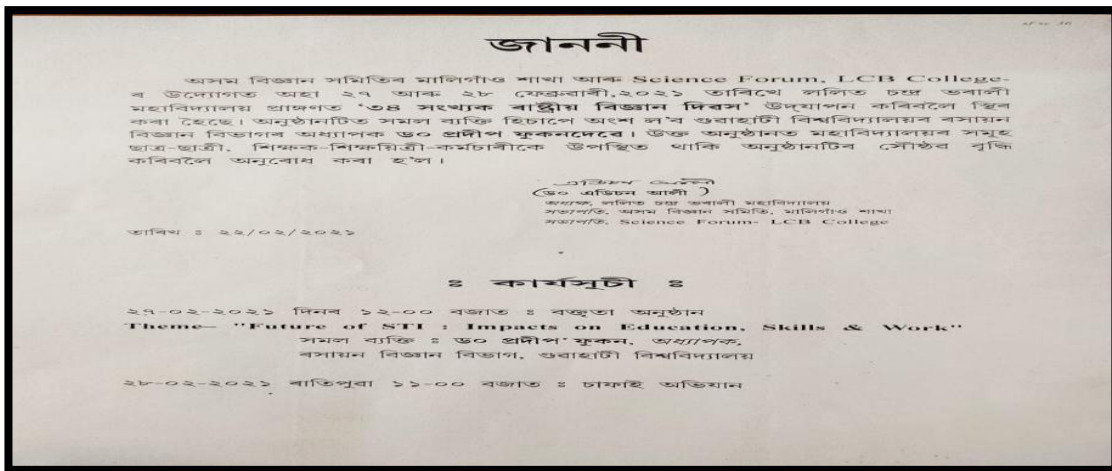 জাননী
অসম বিজ্ঞান সমিতিৰ মালিগাঁও শাখা আৰু Science Forum, LCB College-
ৰ উদ্যোগত অহা ২৭ আৰু ২৮ ফেব্ৰুৱাৰী,২০২১ তাৰিখে ললিত চন্দ্ৰ ভৰালী
মহাবিদ্যালয় প্ৰাঙ্গণত '৩৪ সংখ্যক ৰাষ্ট্ৰীয় বিজ্ঞান দিৱস' উদ্‌যাপন কৰিবলৈ স্থিৰ
কৰা হৈছে। অনুষ্ঠানটিত সমল ব্যক্তি হিচাপে অংশ ল'ব গুৱাহাটী বিশ্ববিদ্যালয়ৰ ৰসায়ন
বিজ্ঞান বিভাগৰ অধ্যাপক ড০ প্ৰদীপ ফুকনদেৱে। উক্ত অনুষ্ঠানত মহাবিদ্যালয়ৰ সমূহ
ছাত্ৰ-ছাত্ৰী, শিক্ষক-শিক্ষয়িত্ৰী-কৰ্মচাৰীকে উপস্থিত থাকি অনুষ্ঠানটিৰ সৌষ্ঠৱ বৃদ্ধি
কৰিবলৈ অনুৰোধ কৰা হ'ল।
(ড০ এডিচন আলী)
অধ্যক্ষ, ললিত চন্দ্ৰ ভৰালী মহাবিদ্যালয়
সভাপতি, অসম বিজ্ঞান সমিতি, মালিগাঁও শাখা
সভাপতি, Science Forum- LCB College
তাৰিখ : ২২/০২/২০২১
: কাৰ্যসূচী :
২৭-০২-২০২১ দিনৰ ১২-০০ বজাত : বক্তৃতা অনুষ্ঠান
Theme– "Future of STI : Impacts on Education, Skills & Work"
সমল ব্যক্তি : ড০ প্ৰদীপ ফুকন, অধ্যাপক,
ৰসায়ন বিজ্ঞান বিভাগ, গুৱাহাটী বিশ্ববিদ্যালয়
২৮-০২-২০২১ ৰাতিপুৱা ১১-০০ বজাত : চাফাই অভিযান